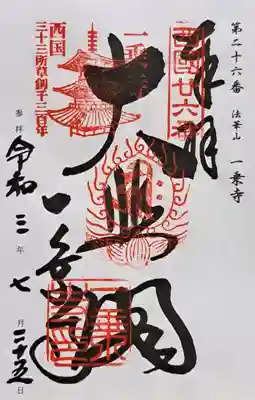 第二十六番 法華山 一乗寺
奉拝
西國廿六番
大悲閣
一乗寺
一乗
西国
三十三所草創千三百年
参拝 令和 三 年 七 月 二十五 日